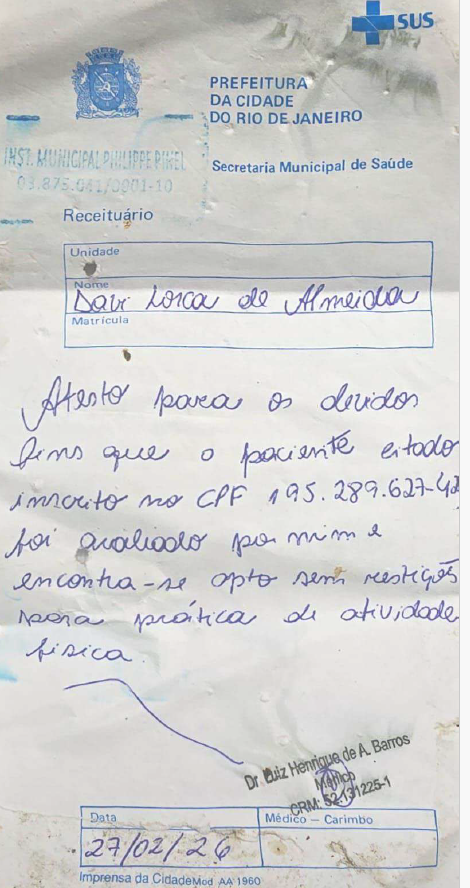 SUS
PREFEITURA
DA CIDADE
DO RIO DE JANEIRO
INST. MUNICIPAL PHILIPPE PINEL
03.875.041/0001-10
Secretaria Municipal de Saúde
Receituário
Unidade
Nome
Davi Lorca de Almeida
Matrícula
Atesto para os devidos
fins que o paciente citado
inscrito no CPF 195.289.627-42
foi avaliado por mim e
encontra-se apto sem restições
para prática de atividade
física.
Dr. Luiz Henrique de A. Barros
Médico
CRM: 52-131225-1
Data
Médico – Carimbo
27/02/26
Imprensa da Cidade Mod. AA 1960